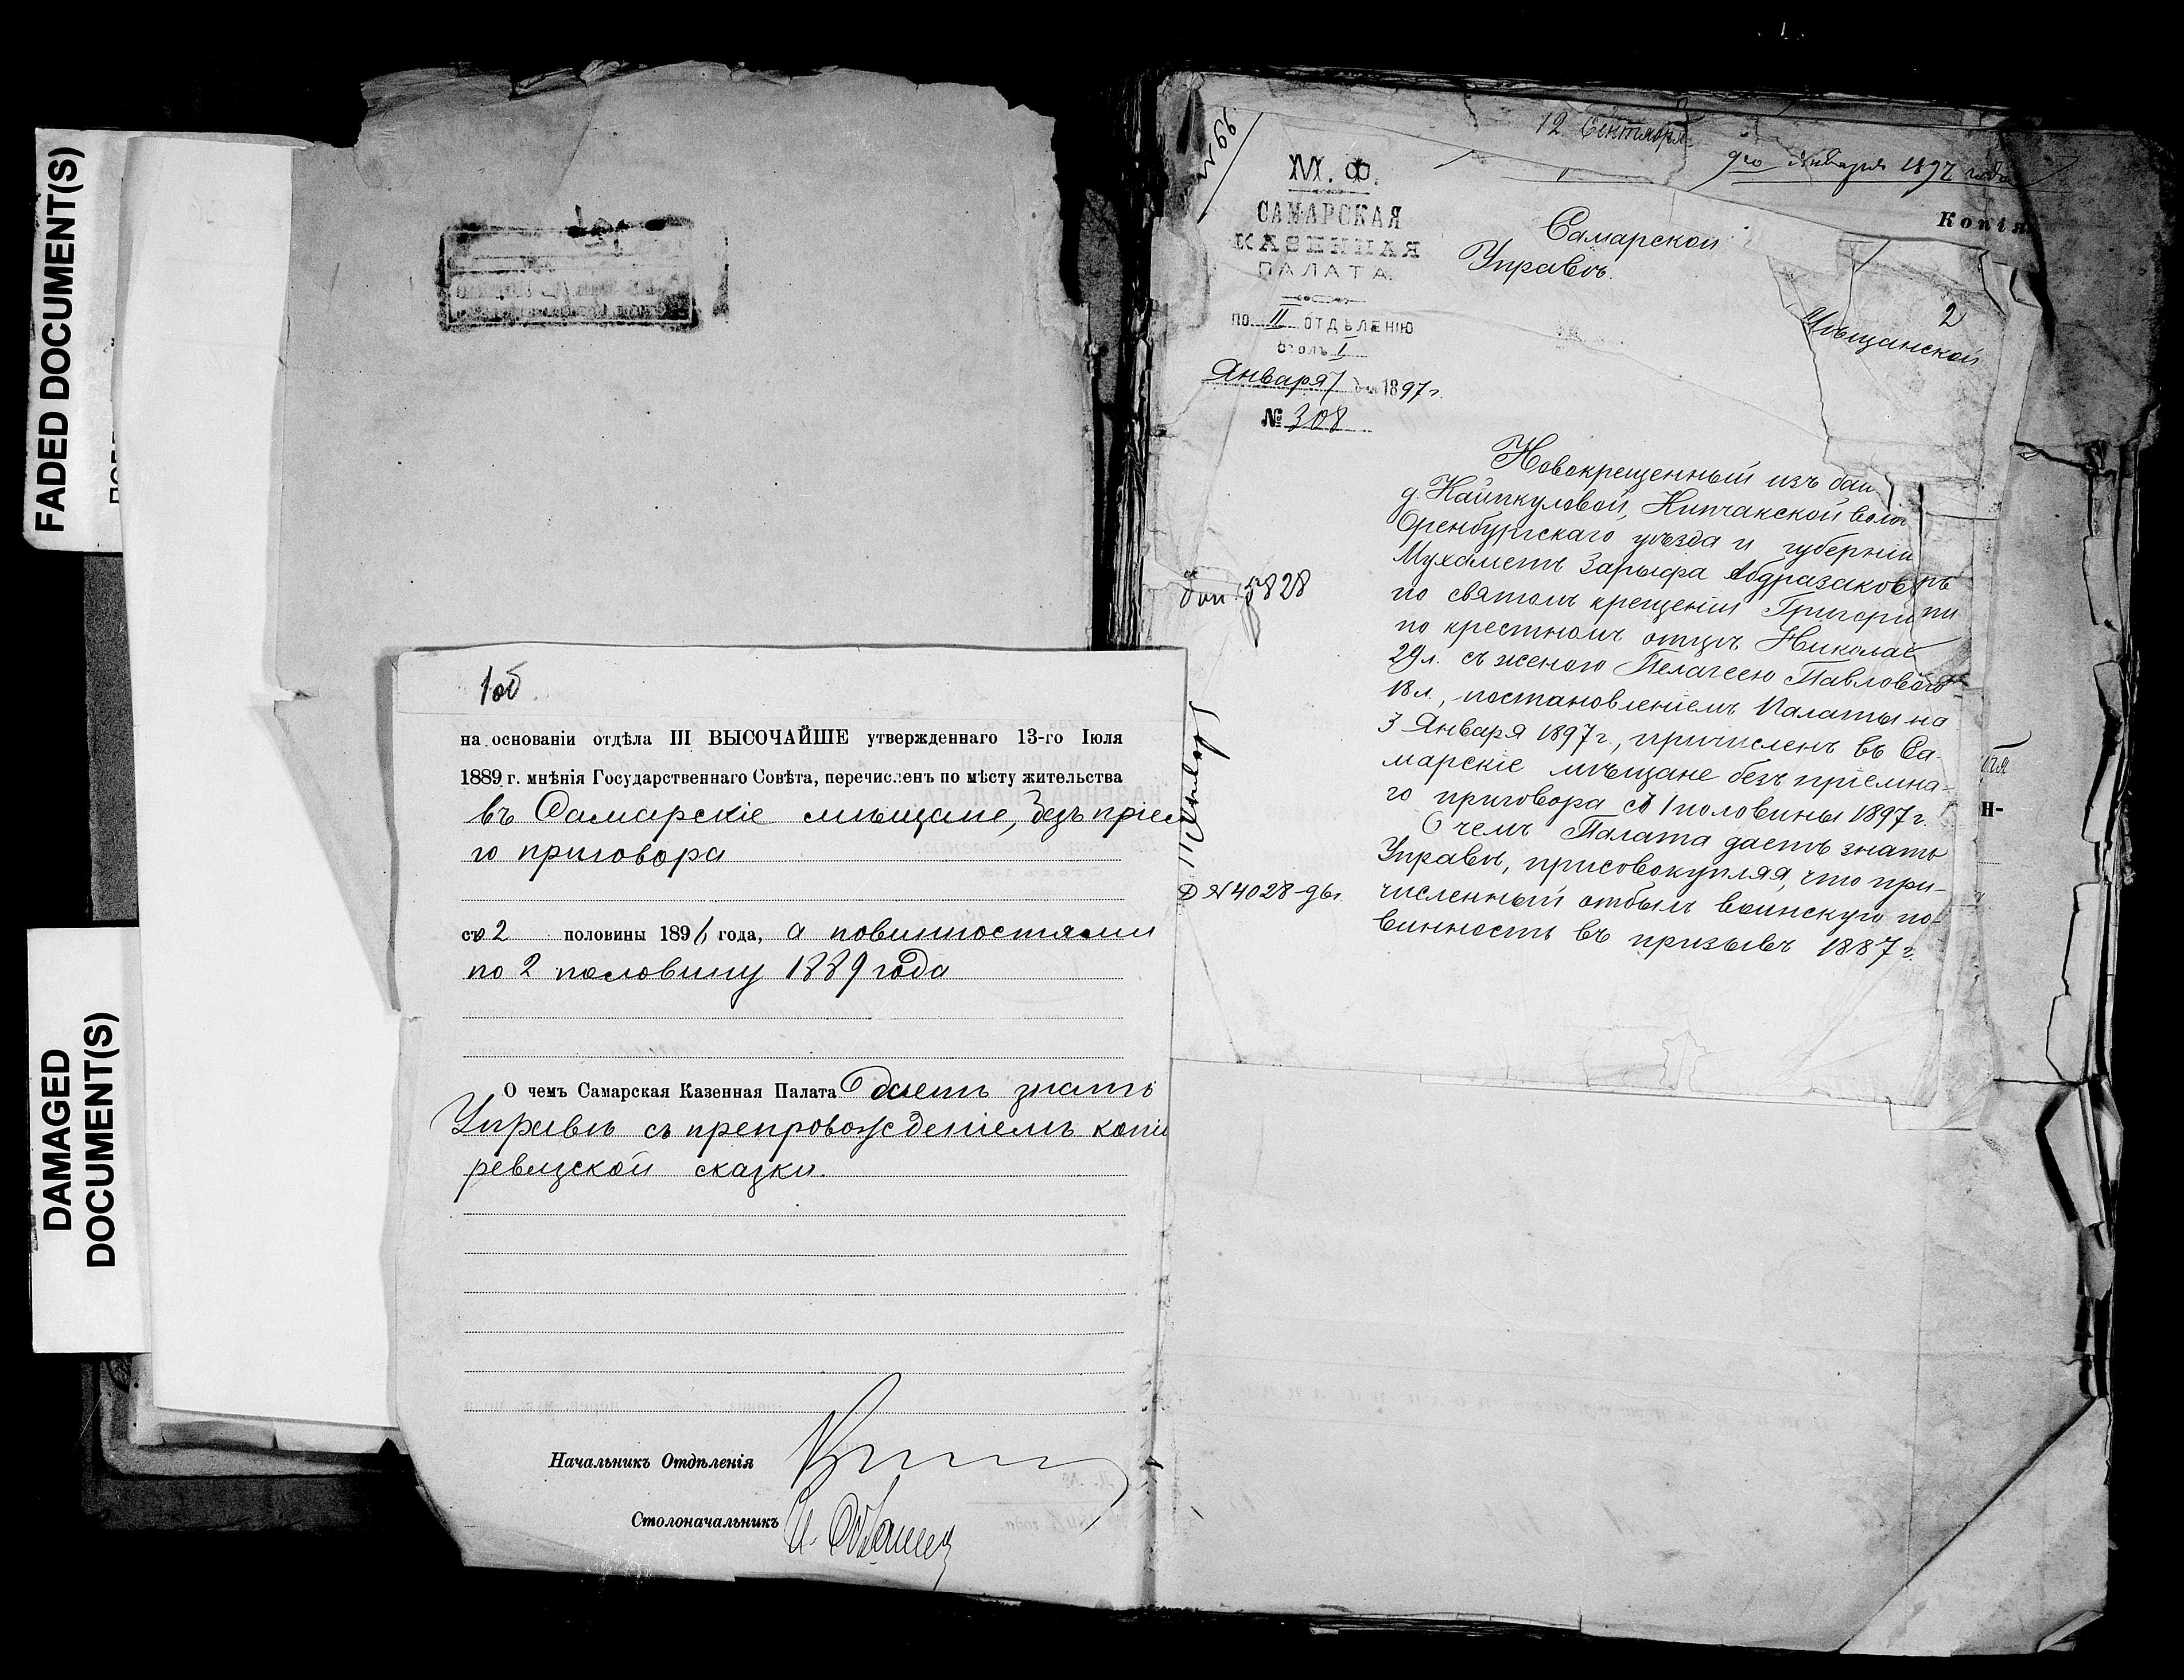 FADED DOCUMENT(S)
DAMAGED
DOCUMENT(S)
1об
на основаніи отдѣла III ВЫСОЧАЙШЕ утвержденнаго 13-го Іюля
1889 г. мнѣнія Государственнаго Совѣта, перечисленъ по мѣсту жительства
въ Самарскіе мѣщане, безъ пріем
го приговора
со 2 половины 1896 года, а повинностями
по 2 половину 1889 года
О чемъ Самарская Казенная Палата даетъ знать
Управѣ съ препровожденіемъ копіи
ревизской сказки.
Начальникъ Отдѣленія
Столоначальникъ
12 Сентября
9го Января 1897 года
Копія
М. Ф.
САМАРСКАЯ
КАЗЕННАЯ
ПАЛАТА.
ПО II ОТДѢЛЕНІЮ
Столъ I
Января 7 дня 1897 г.
№ 308
Самарской
2
Мѣщанской
Управѣ.
Новокрещенный изъ баш
д. Каипкуловой, Кипчакской воло
Оренбургскаго уѣзда и губерніи
Мухаметъ Зарыфа Абдразаков
по святомъ крещеніи Григорі
по крестномъ отцѣ Николае
29 л. съ женою Пелагеею Павловою
18 л., постановленіемъ Палаты на
3 Января 1897 г., причисленъ въ Са-
марскіе мѣщане безъ пріемна-
го приговора съ 1 половины 1897 г.
О чемъ Палата даетъ знать
Управѣ, присовокупляя, что при-
численный отбылъ воинскую по-
винность въ призывъ 1887 г.
5828
Д № 4028-96 г.
Н-